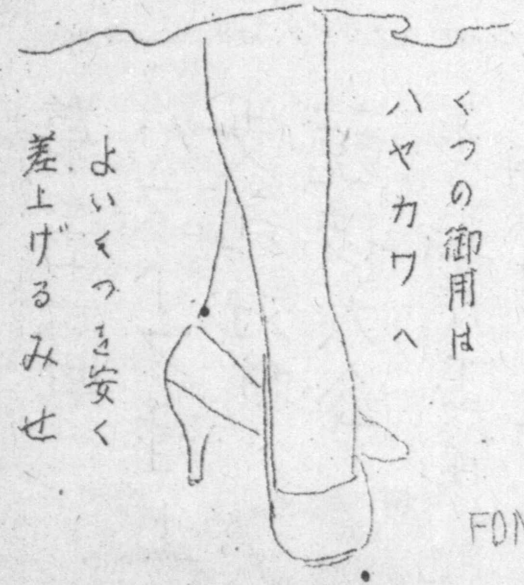 くつの御用は
ハヤカワへ
よいくつを安く
差上げるみせ
FDN